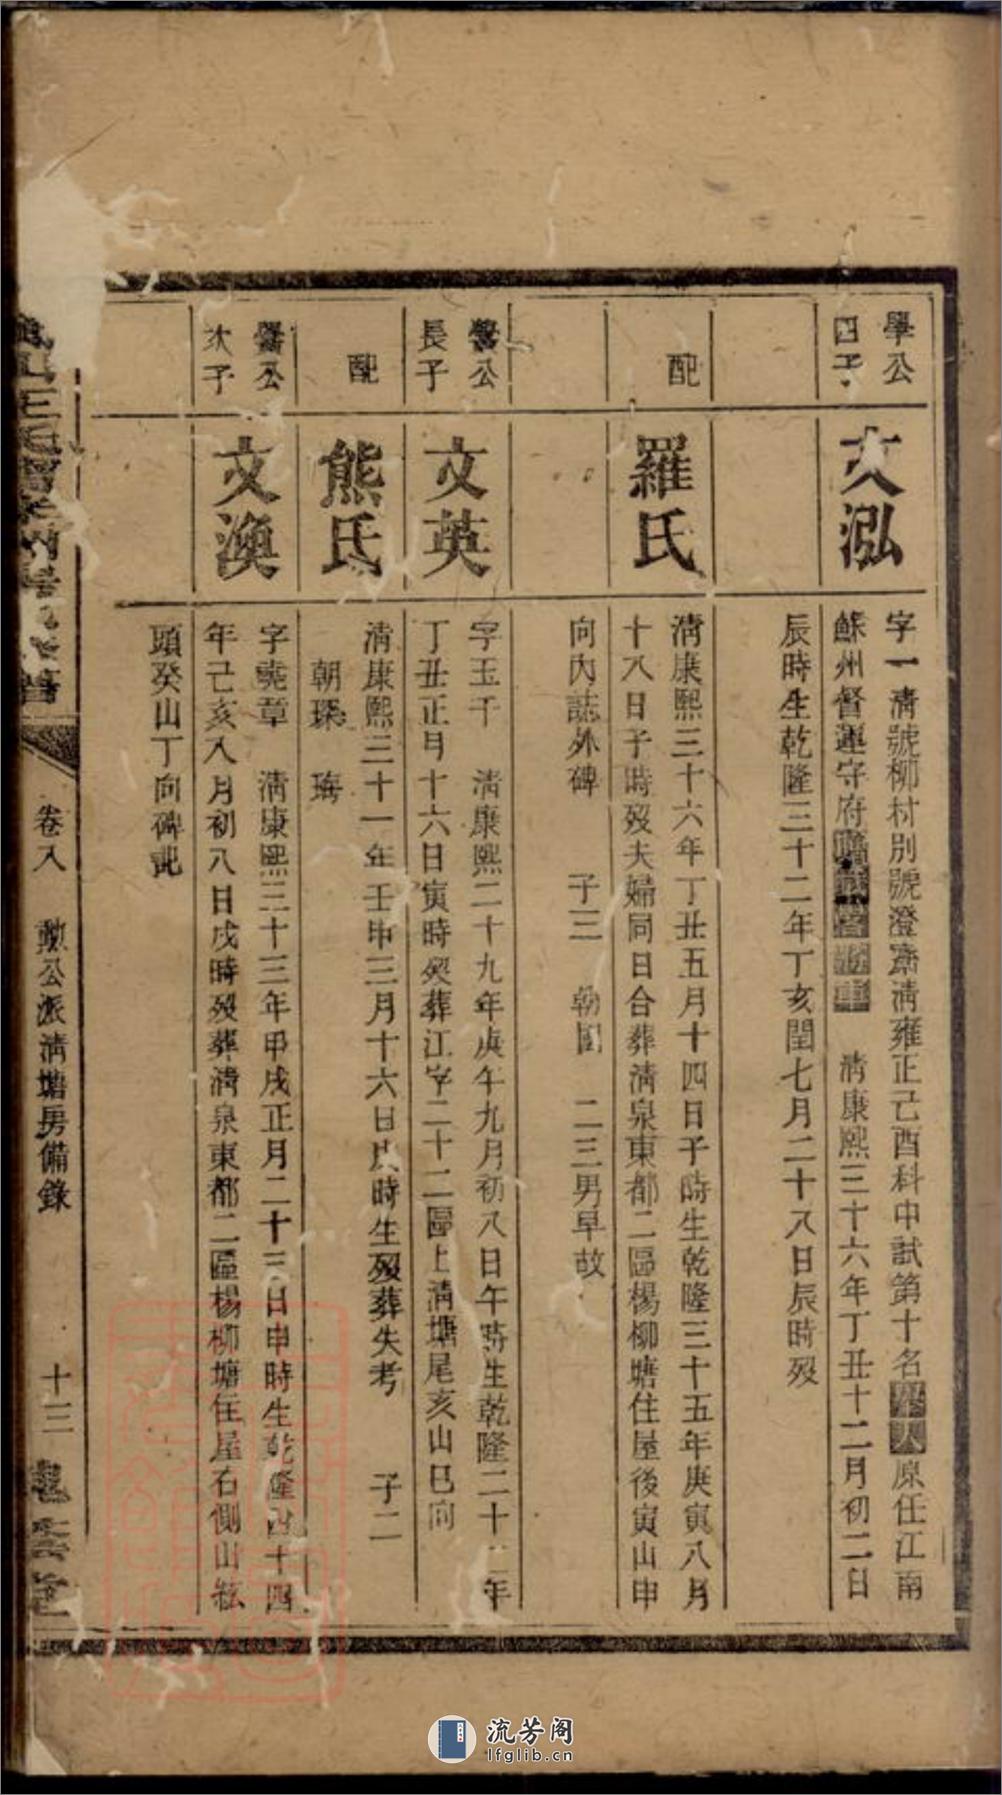 學公
四子
文泓
字一清號柳村別號澄齋清雍正己酉科中試第十名舉人原任江南
蘇州督運守府 清康熙三十六年丁丑十二月初二日
辰時生乾隆三十二年丁亥閏七月二十八日辰時歿
配
羅氏
清康熙三十六年丁丑五月十四日子時生乾隆三十五年庚寅八月
十八日子時歿夫婦同日合葬清泉東都二區楊柳塘住屋後寅山申
向內誌外碑 子三 朝 二三男早故
公
長子
文英
字玉千 清康熙二十九年庚午九月初八日午時生乾隆二十二年
丁丑正月十六日寅時歿葬江字二十二區上清塘尾亥山巳向
配
熊氏
清康熙三十一年壬申三月十六日 時生歿葬失考 子二
朝琛 
公
次子
文渙
字堯章 清康熙三十三年甲戌正月二十三日申時生乾隆四十四
年己亥八月初八日戌時歿葬清泉東都二區楊柳塘住屋右側山
頭癸山丁向碑記
卷八 勲公派清塘房備錄 十三
流芳阁
lfglib.cn